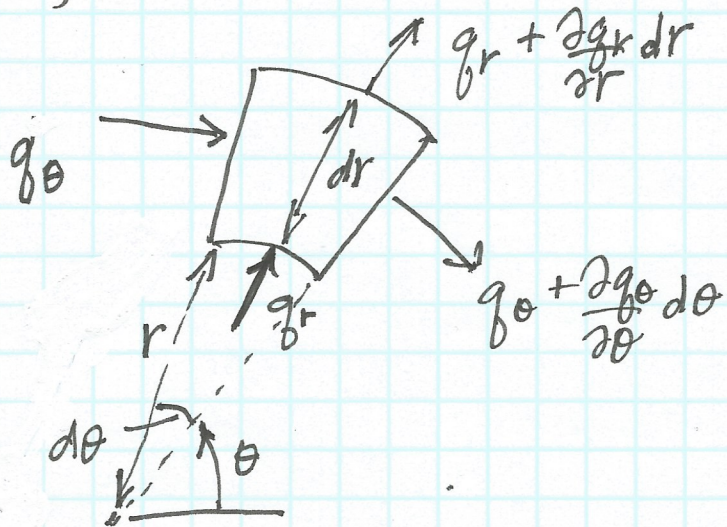 q_r + ∂q_r/∂r dr
q_θ
dr
q_r
q_θ + ∂q_θ/∂θ dθ
r
dθ
θ